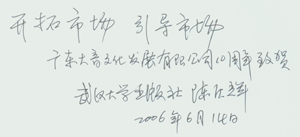 开拓市场 引导市场
广东大音文化发展有限公司10周年致贺
武汉大学出版社 陈庆辉
2006年6月14日